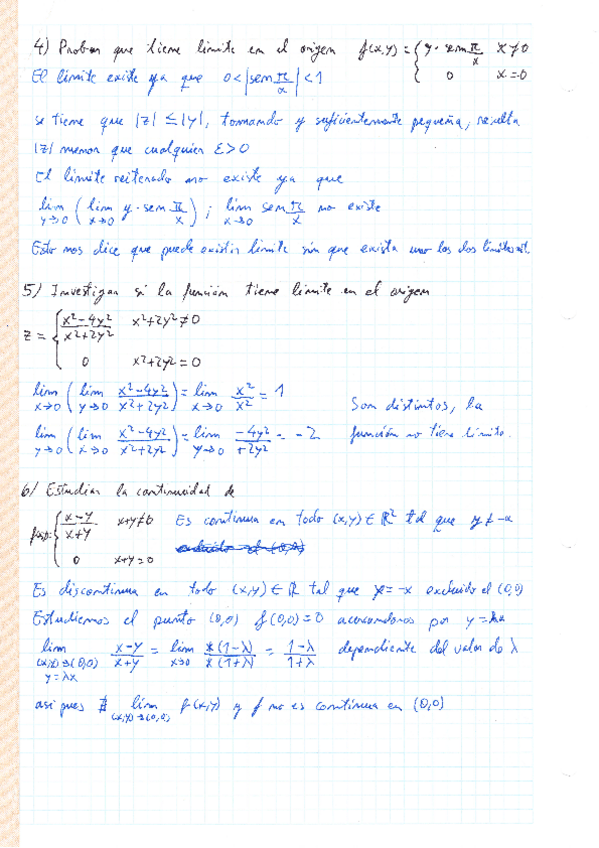 4) Probar que tiene limite en el origen f(x,y) = { y · sen π/x x ≠ 0
0 x = 0
El limite existe ya que 0 < |sen π/x| < 1
se tiene que |z| ≤ |y|, tomando y suficientemente pequeña, resulta
|z| menor que cualquier ε > 0
El limite reiterado no existe ya que
lim y→0 ( lim x→0 y · sen π/x ) ; lim x→0 sen π/x no existe
Esto nos dice que puede existir limite sin que exista uno los dos limites
5) Investigar si la función tiene limite en el origen
z = { x²-4y² / x²+2y² x²+2y² ≠ 0
0 x²+2y² = 0
lim x→0 ( lim y→0 x²-4y² / x²+2y² ) = lim x→0 x²/x² = 1
Son distintos, la
lim y→0 ( lim x→0 x²-4y² / x²+2y² ) = lim y→0 -4y² / +2y² = -2
función no tiene limite.
6) Estudiar la continuidad de
f(x,y) = { x-y / x+y x+y ≠ 0 Es continua en todo (x,y) ∈ ℝ² tal que y ≠ -x
excluido el (0,0)
0 x+y = 0
Es discontinua en todo (x,y) ∈ ℝ tal que y = -x excluido el (0,0)
Estudiemos el punto (0,0) f(0,0) = 0 acercandonos por y = λx
lim (x,y)→(0,0) y = λx x-y / x+y = lim x→0 x(1-λ) / x(1+λ) = 1-λ / 1+λ dependiente del valor de λ
asi pues ∄ lim (x,y)→(0,0) f(x,y) y f no es continua en (0,0)